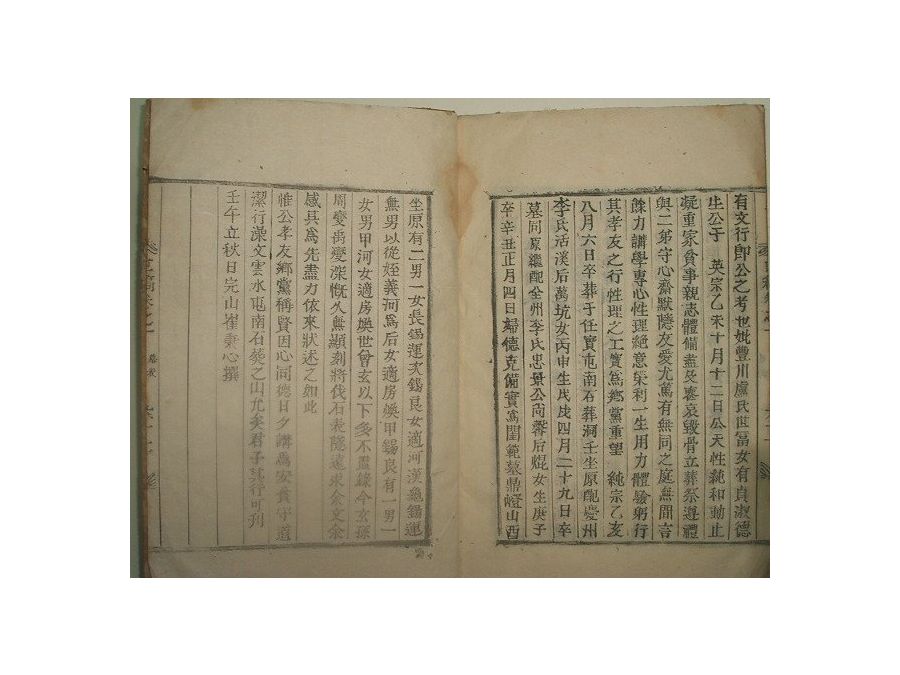 有文行郎公之考也妣豐川盧氏世冨女有貞淑德
生公于 英宗乙未十月十二日公天性純和動止
凝重家貧事親志體備盡及喪哀毀骨立葬祭遵禮
與二弟守心齋默隱友愛尤篤有無同之庭無間言
餘力講學專心性理絶意榮利一生用力體驗躬行
其孝友之行性理之工實爲鄉黨重望 純宗乙亥
八月六日卒葬于任實屯南石葬洞壬坐原配慶州
李氏活溪后萬坑女丙申生戊戌四月二十九日卒
墓同原繼配全州李氏忠景公尚馨后焜女生庚子
卒辛丑正月四日婦德克備實爲閨範墓鼎燈山酉
坐原有二男一女長錫運次錫良女適河漢龜錫運
無男以從姪義河爲后女適房煥甲錫良有一男一
女男甲河女適房煥世曾玄以下多不盡錄今玄孫
周燮禹燮深慨久無顯刻將伐石表隧遠求余文余
感其爲先盡力依來狀述之如此
惟公孝友鄉黨稱賢因心同德日夕講爲安貧守道
潔行藻文雲水屯南石葬之山允矣君子其行可刊
壬午立秋日完山崔秉心撰